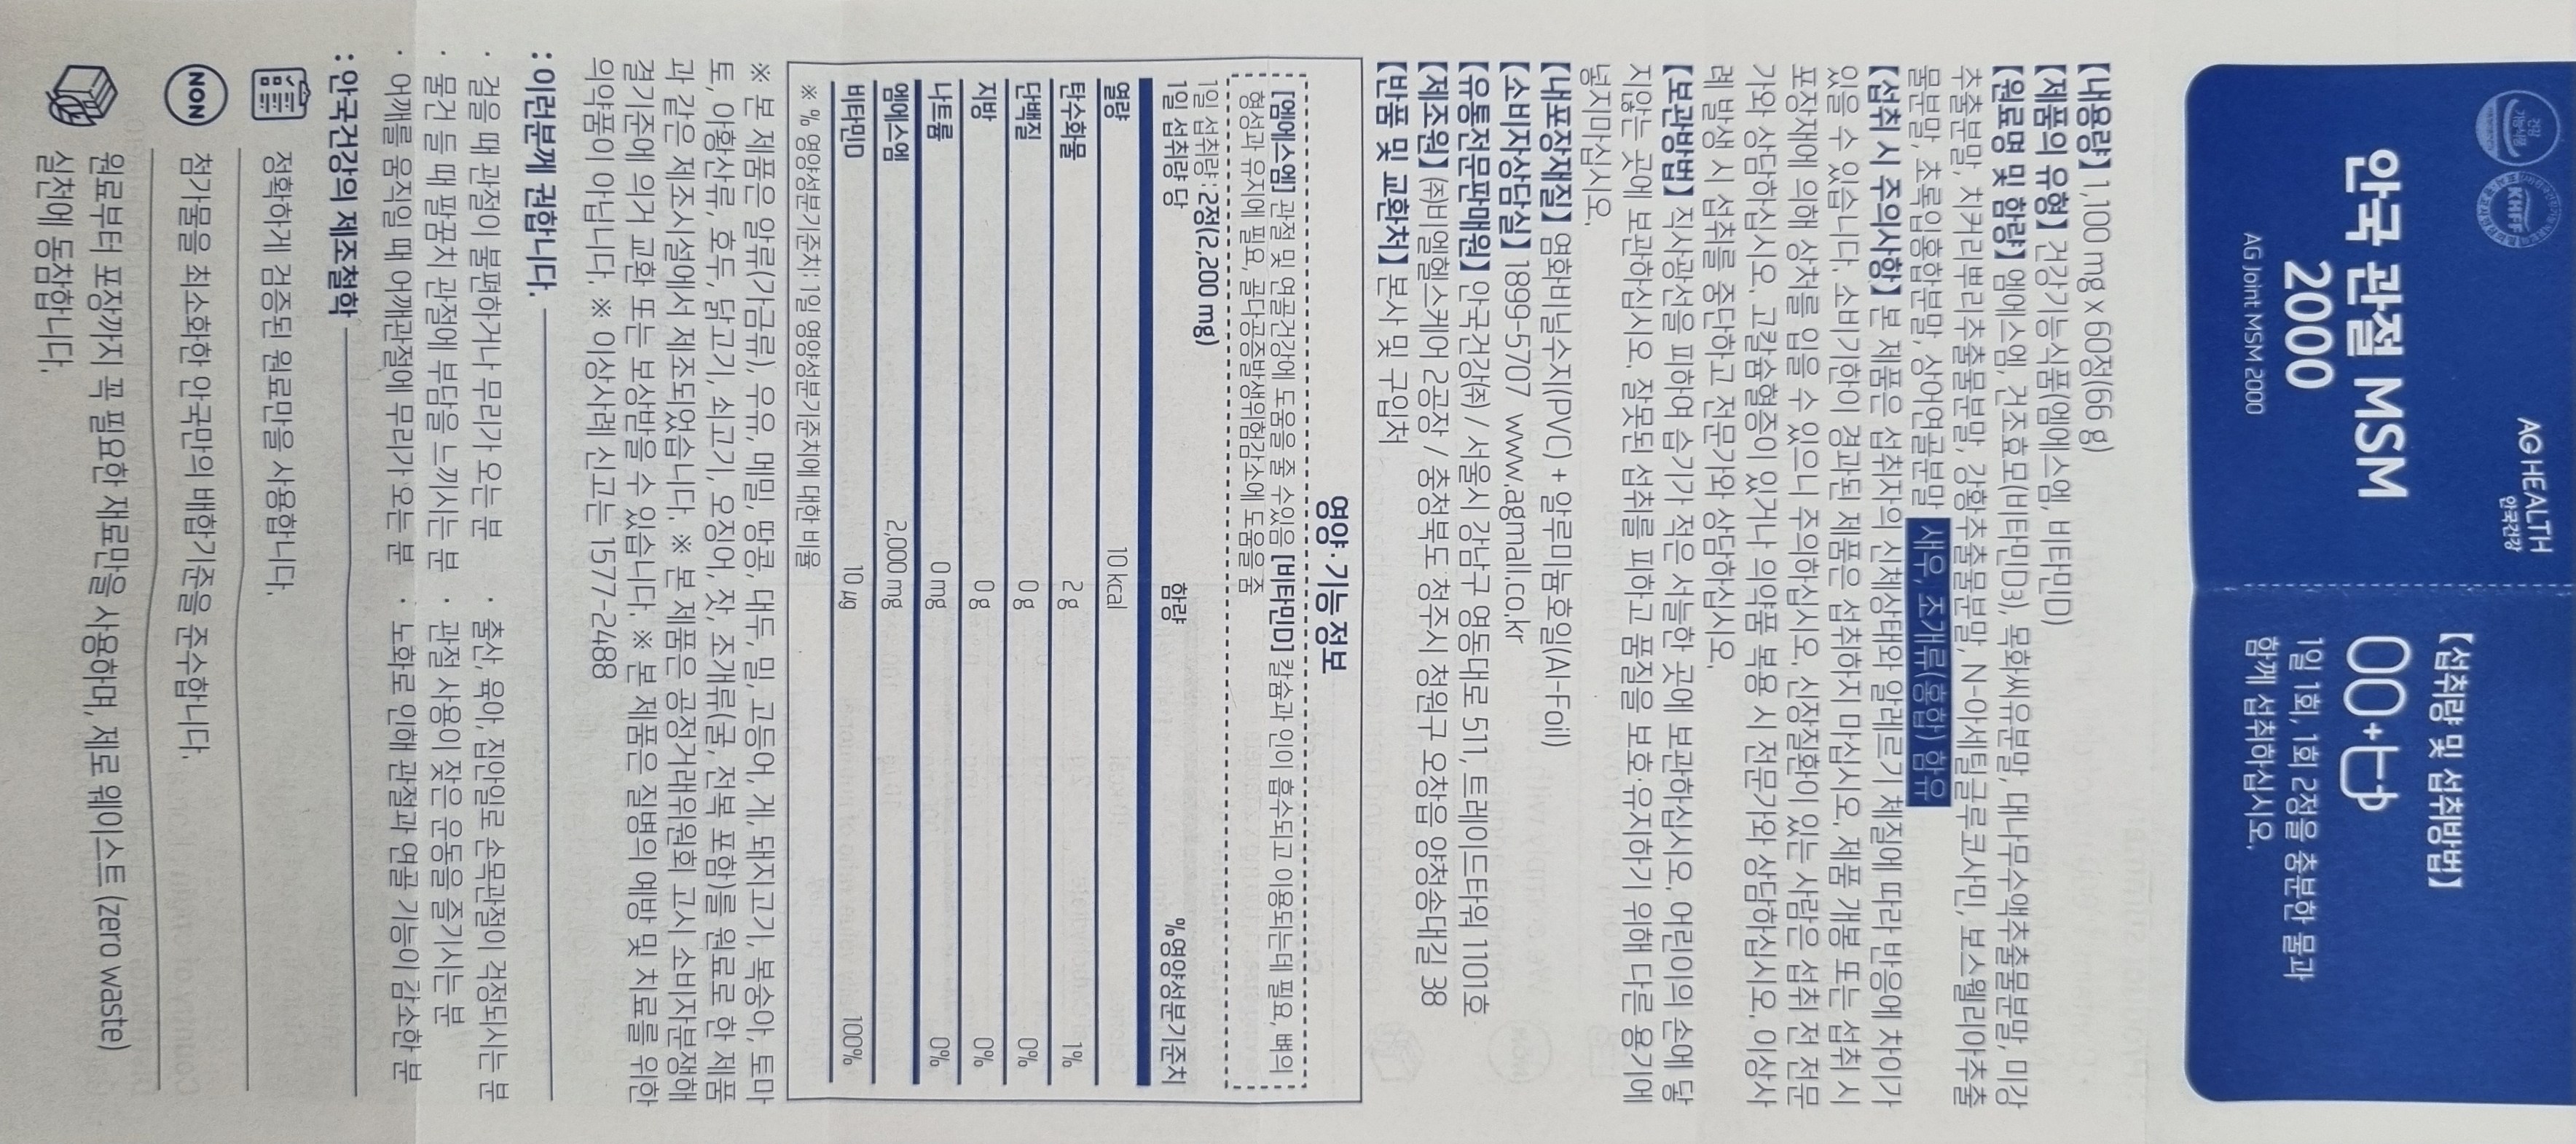 건강
기능식품
KHFF
AG HEALTH
안국건강
안국 관절 MSM
2000
AG Joint MSM 2000
【섭취량 및 섭취방법】
1일 1회, 1회 2정을 충분한 물과
함께 섭취하십시오.
【내용량】 1,100 mg x 60정(66 g)
【제품의 유형】 건강기능식품(엠에스엠, 비타민D)
【원료명 및 함량】 엠에스엠, 건조효모(비타민D3), 목화씨유분말, 대나무수액추출물분말, 미강
추출분말, 치커리뿌리추출물분말, 강황추출물분말, N-아세틸글루코사민, 보스웰리아추출
물분말, 초록입홍합분말, 상어연골분말 새우, 조개류(홍합) 함유
【섭취 시 주의사항】 본 제품은 섭취자의 신체상태와 알레르기 체질에 따라 반응에 차이가
있을 수 있습니다. 소비기한이 경과된 제품은 섭취하지 마십시오. 제품 개봉 또는 섭취 시
포장재에 의해 상처를 입을 수 있으니 주의하십시오. 신장질환이 있는 사람은 섭취 전 전문
가와 상담하십시오. 고칼슘혈증이 있거나 의약품 복용 시 전문가와 상담하십시오. 이상사
례 발생 시 섭취를 중단하고 전문가와 상담하십시오.
【보관방법】 직사광선을 피하여 습기가 적은 서늘한 곳에 보관하십시오. 어린이의 손에 닿
지않는 곳에 보관하십시오. 잘못된 섭취를 피하고 품질을 보호·유지하기 위해 다른 용기에
넣지마십시오.
【내포장재질】 염화비닐수지(PVC) + 알루미늄호일(Al-Foil)
【소비자상담실】 1899-5707 www.agmall.co.kr
【유통전문판매원】 안국건강(주) / 서울시 강남구 영동대로 511, 트레이드타워 1101호
【제조원】 (주)비엘헬스케어 2공장 / 충청북도 청주시 청원구 오창읍 양청송대길 38
【반품 및 교환처】 본사 및 구입처
영양·기능정보
[엠에스엠] 관절 및 연골건강에 도움을 줄 수있음 [비타민D] 칼슘과 인이 흡수되고 이용되는데 필요, 뼈의
형성과 유지에 필요, 골다공증발생위험감소에 도움을 줌
1일 섭취량 : 2정(2,200 mg)
1일 섭취량 당 함량 %영양성분기준치
열량 10 kcal
탄수화물 2 g 1%
단백질 0 g 0%
지방 0 g 0%
나트륨 0 mg 0%
엠에스엠 2,000 mg
비타민D 10 ㎍ 100%
※ % 영양성분기준치: 1일 영양성분기준치에 대한 비율
※ 본 제품은 알류(가금류), 우유, 메밀, 땅콩, 대두, 밀, 고등어, 게, 돼지고기, 복숭아, 토마
토, 아황산류, 호두, 닭고기, 쇠고기, 오징어, 잣, 조개류(굴, 전복 포함)를 원료로 한 제품
과 같은 제조시설에서 제조되었습니다. ※ 본 제품은 공정거래위원회 고시 소비자분쟁해
결기준에 의거 교환 또는 보상받을 수 있습니다. ※ 본 제품은 질병의 예방 및 치료를 위한
의약품이 아닙니다. ※ 이상사례 신고는 1577-2488
: 이런분께 권합니다.
· 걸을 때 관절이 불편하거나 무리가 오는 분 · 출산, 육아, 집안일로 손목관절이 걱정되시는 분
· 물건 들 때 팔꿈치 관절에 부담을 느끼시는 분 · 관절 사용이 잦은 운동을 즐기시는 분
· 어깨를 움직일 때 어깨관절에 무리가 오는 분 · 노화로 인해 관절과 연골 기능이 감소한 분
: 안국건강의 제조철학
정확하게 검증된 원료만을 사용합니다.
NON
첨가물을 최소화한 안국만의 배합기준을 준수합니다.
원료부터 포장까지 꼭 필요한 재료만을 사용하며, 제로 웨이스트 (zero waste)
실천에 동참합니다.